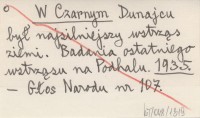 W Czarnym Dunajcu
był najsilniejszy wstrząs
ziemi. Badania ostatniego
wstrząsu na Podhalu. 1935.
— Głos Narodu nr 107.